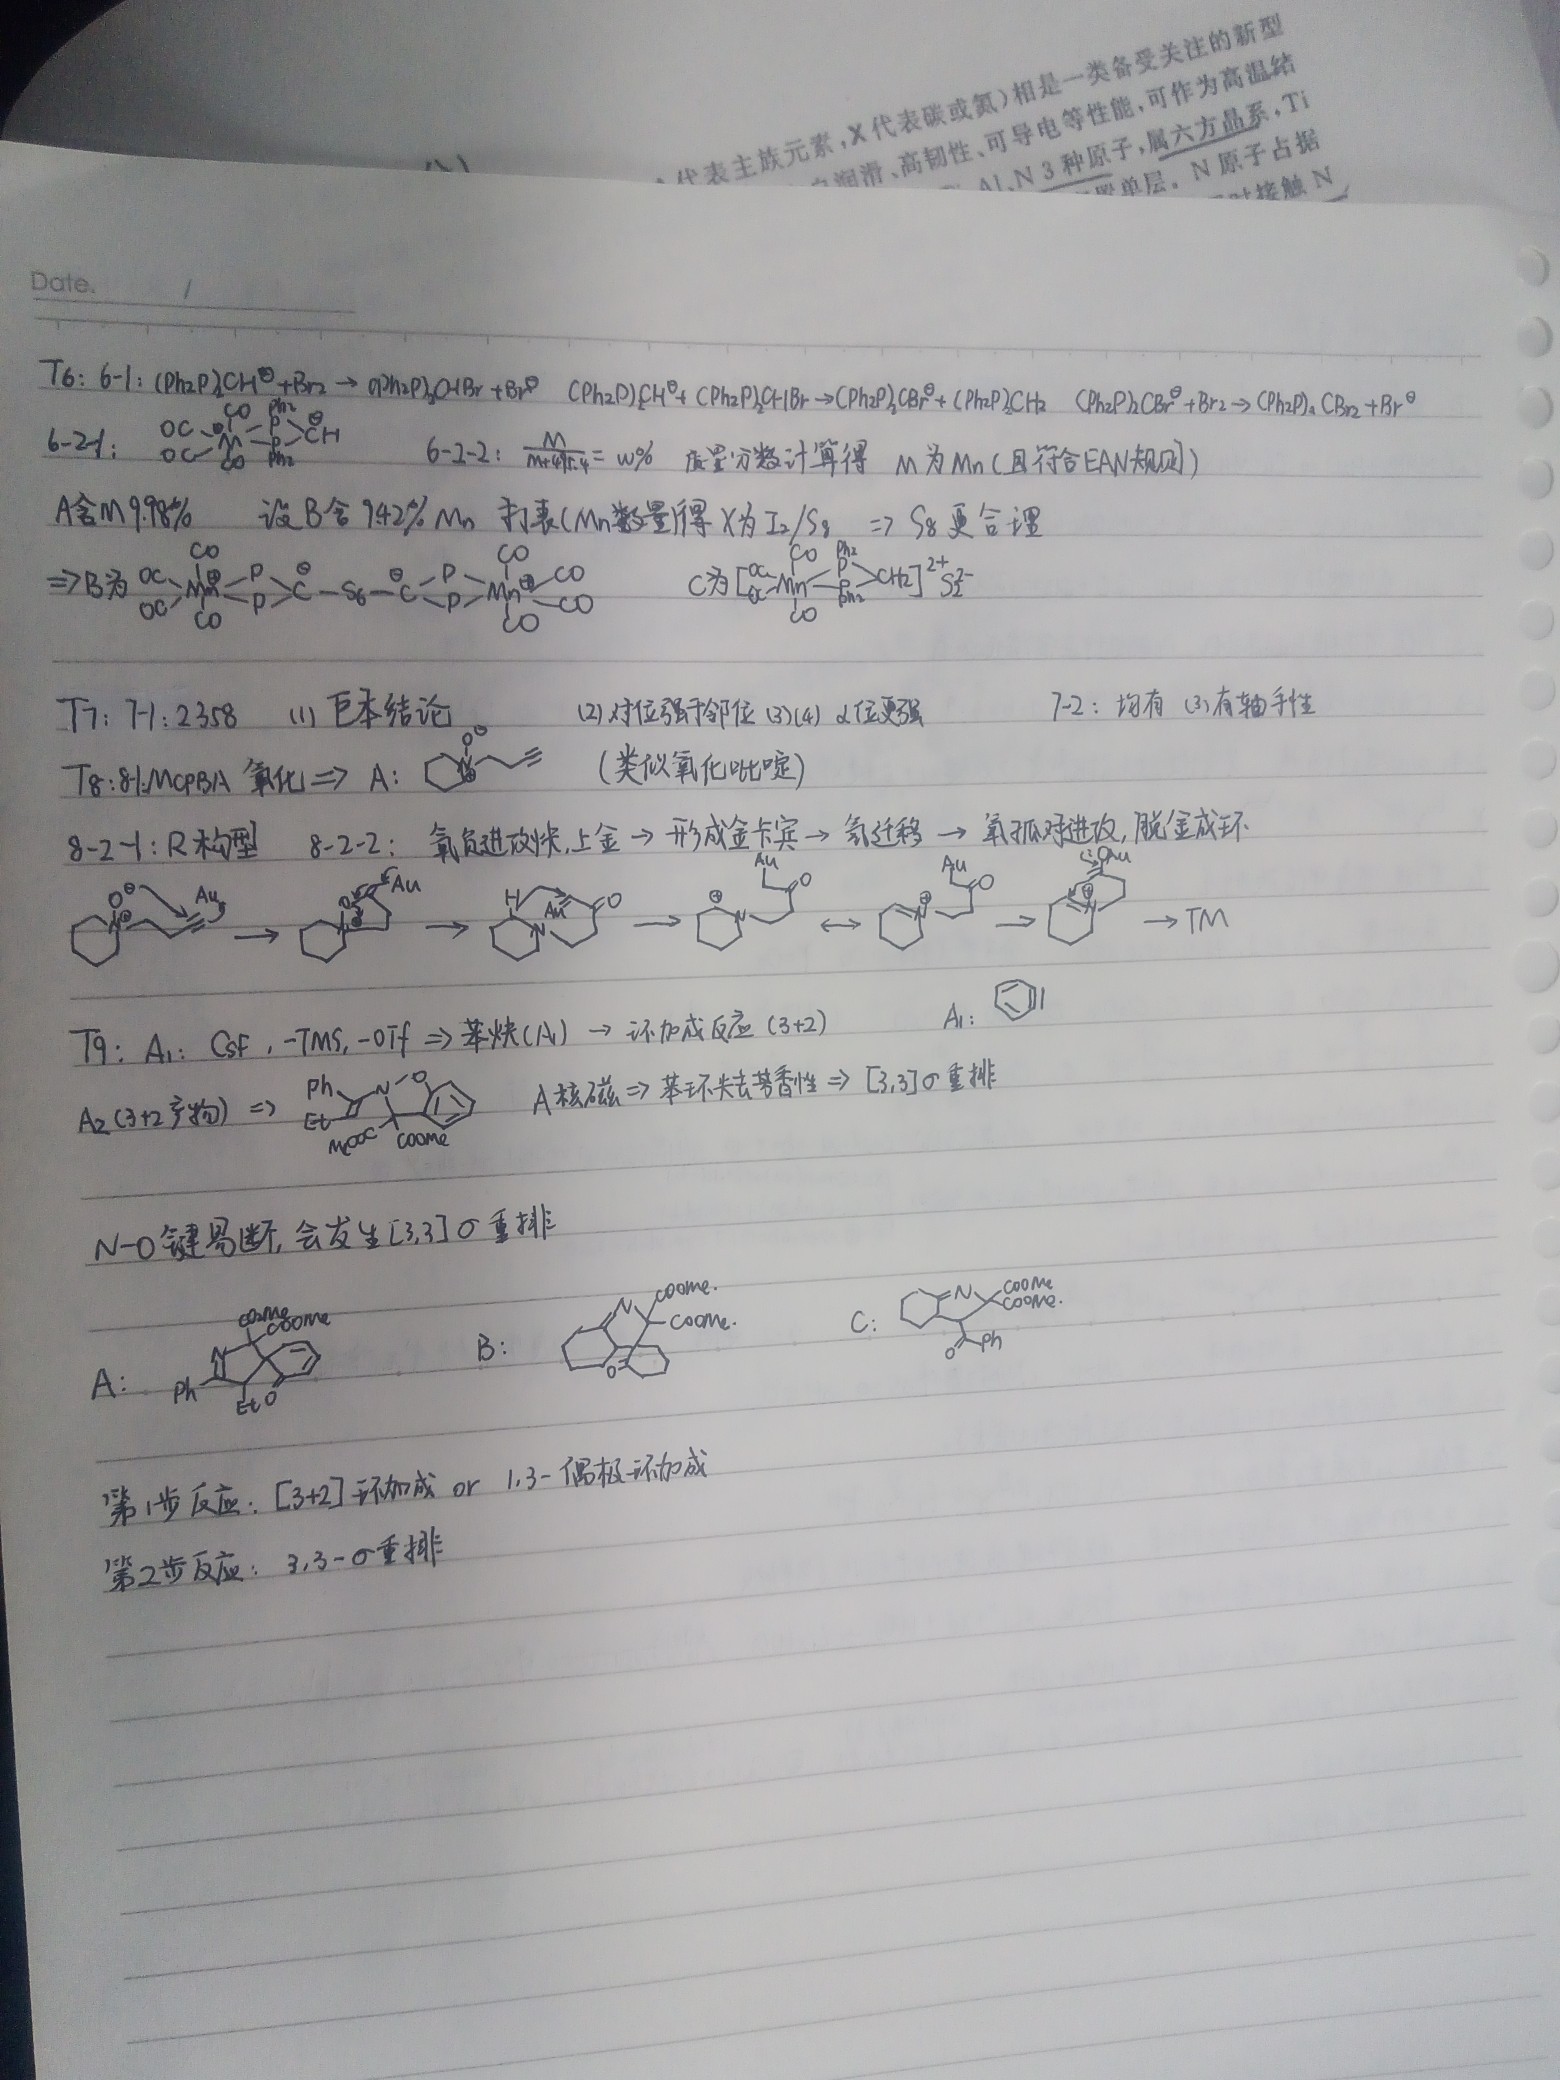 代表主族元素,X代表碳或氮)相是一类备受关注的新型
润滑、高韧性、可导电等性能,可作为高温结
Al、N 3种原子,属六方晶系,Ti
单层。N原子占据
接触N
Date. /
T6: 6-1: (Ph₂P)₂CH⊖+Br₂→(Ph₂P)₂CHBr+Br⊖ (Ph₂P)₂CH⊖+(Ph₂P)₂CHBr→(Ph₂P)₂CBr⊖+(Ph₂P)₂CH₂ (Ph₂P)₂CBr⊖+Br₂→(Ph₂P)₂CBr₂+Br⊖
6-2-1: OC OC CO CO M Ph₂ P P Ph₂ CH 6-2-2: M/(M+495.4)=w% 质量分数计算得 M为Mn(且符合EAN规则)
A含M 9.98% 设B含9.42% Mn 打表(Mn数量)得X为I₂/S₈ ⇒ S₈更合理
⇒B为 OC OC CO CO Mn P P C — S₆ — C P P Mn CO CO CO CO C为[OC OC CO CO Mn Ph₂ P P Ph₂ CH₂]²⁺S₂²⁻
T7: 7-1: 2358 (1) 巨本结论 (2)对位强于邻位 (3)(4) α位更强 7-2: 均有 (3)有轴手性
T8: 8-1: MCPBA 氧化⇒ A: O⊖ N⊕ (类似氧化吡啶)
8-2-1: R构型 8-2-2: 氧负进攻炔,上金→形成金卡宾→氢迁移→氧孤对进攻,脱金成环
O⊖ N⊕ Au → O N Au → H N Au O → ⊕ N Au O ↔ N⊕ Au O → N OAu → TM
T9: A₁: CsF, -TMS, -OTf ⇒苯炔(A₁) → 环加成反应(3+2) A₁:
A₂(3+2产物) ⇒ Ph Et N-O MeOOC COOMe A核磁⇒苯环失去芳香性⇒[3,3]σ重排
N-O键易断,会发生[3,3]σ重排
A: COOMe COOMe N Ph Et O B: N COOMe. COOMe. O C: N COOMe COOMe. O Ph
第1步反应: [3+2]环加成 or 1,3-偶极环加成
第2步反应: 3,3-σ重排